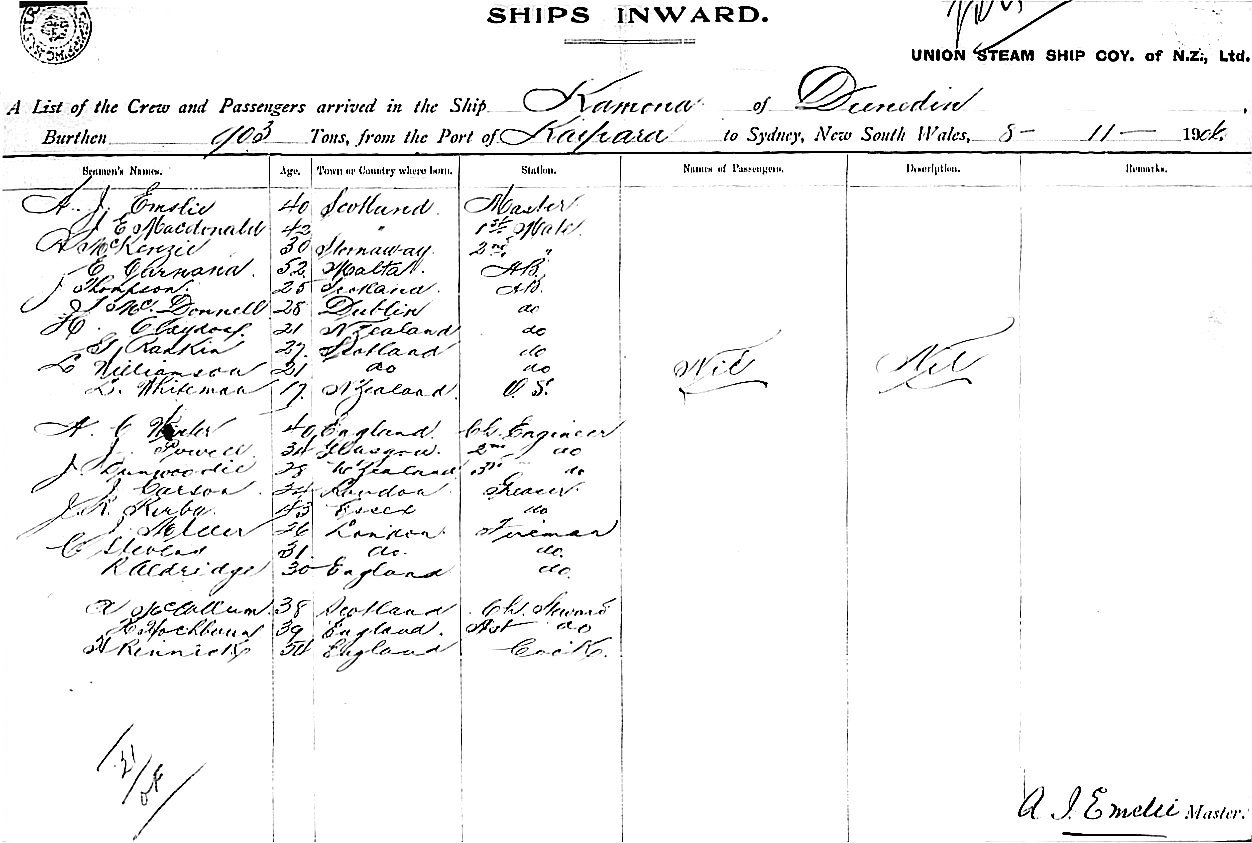 SHIPS INWARD.
UNION STEAM SHIP COY. of N.Z., Ltd.
A List of the Crew and Passengers arrived in the Ship Kamona of Dunedin
Burthen 903 Tons, from the Port of Kaipara to Sydney, New South Wales, 8 - 11 - 190
Seamen's Names. Age. Town or Country where born. Station. Names of Passengers. Description. Remarks.
A. J. Emslie 40 Scotland Master
J E Macdonald 42 " 1st Mate
A McKenzie 30 Stornaway 2nd "
E 52 Malta. AB.
J Thompson. 25 Scotland AB.
J McDonnell 28 Dublin do
H. 21 N Zealand do
G. Rankin 27 Scotland do
L Williamson 21 do do
L. Whiteman 17 N Zealand. O.S.
Nil Nil
A. C 40 England. Ch. Engineer
J. Powell 34 Glasgow. 2nd do
J Dunwoodie 28 N Zealand 3rd do
J Carson 34 London Greaser
J. R. Kirby. 43 Essex do
J. 26 London Fireman
C Stevens 31. do. do.
R Aldridge 30 England do.
A McCallum. 38 Scotland Ch. Steward
H 39 England. Ast do
H Rennick 54 England Cook.
21
A J. Emslie Master.